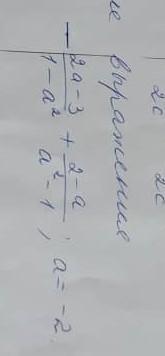 2c 2c
ие выражение
− 2a−3 / 1−a² + 2−a / a²−1 ; a = −2